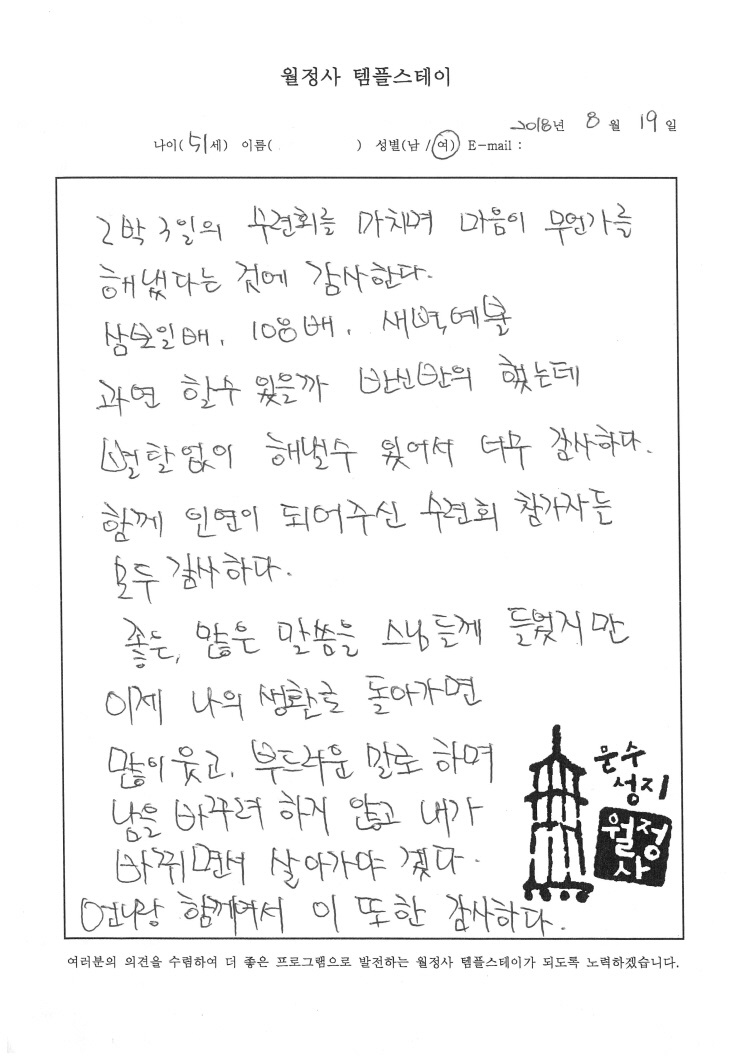 월정사 템플스테이
2018년 8월 19일
나이(51세) 이름( ) 성별(남 /여) E-mail :
2박 3일의 수련회를 마치며 마음이 무언가를
해냈다는 것에 감사한다.
삼보일배, 108배, 새벽예불
과연 할수 있을까 반신반의 했는데
별탈없이 해낼수 있어서 너무 감사하다.
함께 인연이 되어주신 수련회 참가자들
모두 감사하다.
좋은, 많은 말씀을 스님들께 들었지만
이제 나의 생활로 돌아가면
많이 웃고, 부드러운 말로 하며
남을 바꾸려 하지 않고 내가
바뀌면서 살아가야 겠다.
언니랑 함께여서 이 또한 감사하다.
문수
성지
월정
사
여러분의 의견을 수렴하여 더 좋은 프로그램으로 발전하는 월정사 템플스테이가 되도록 노력하겠습니다.